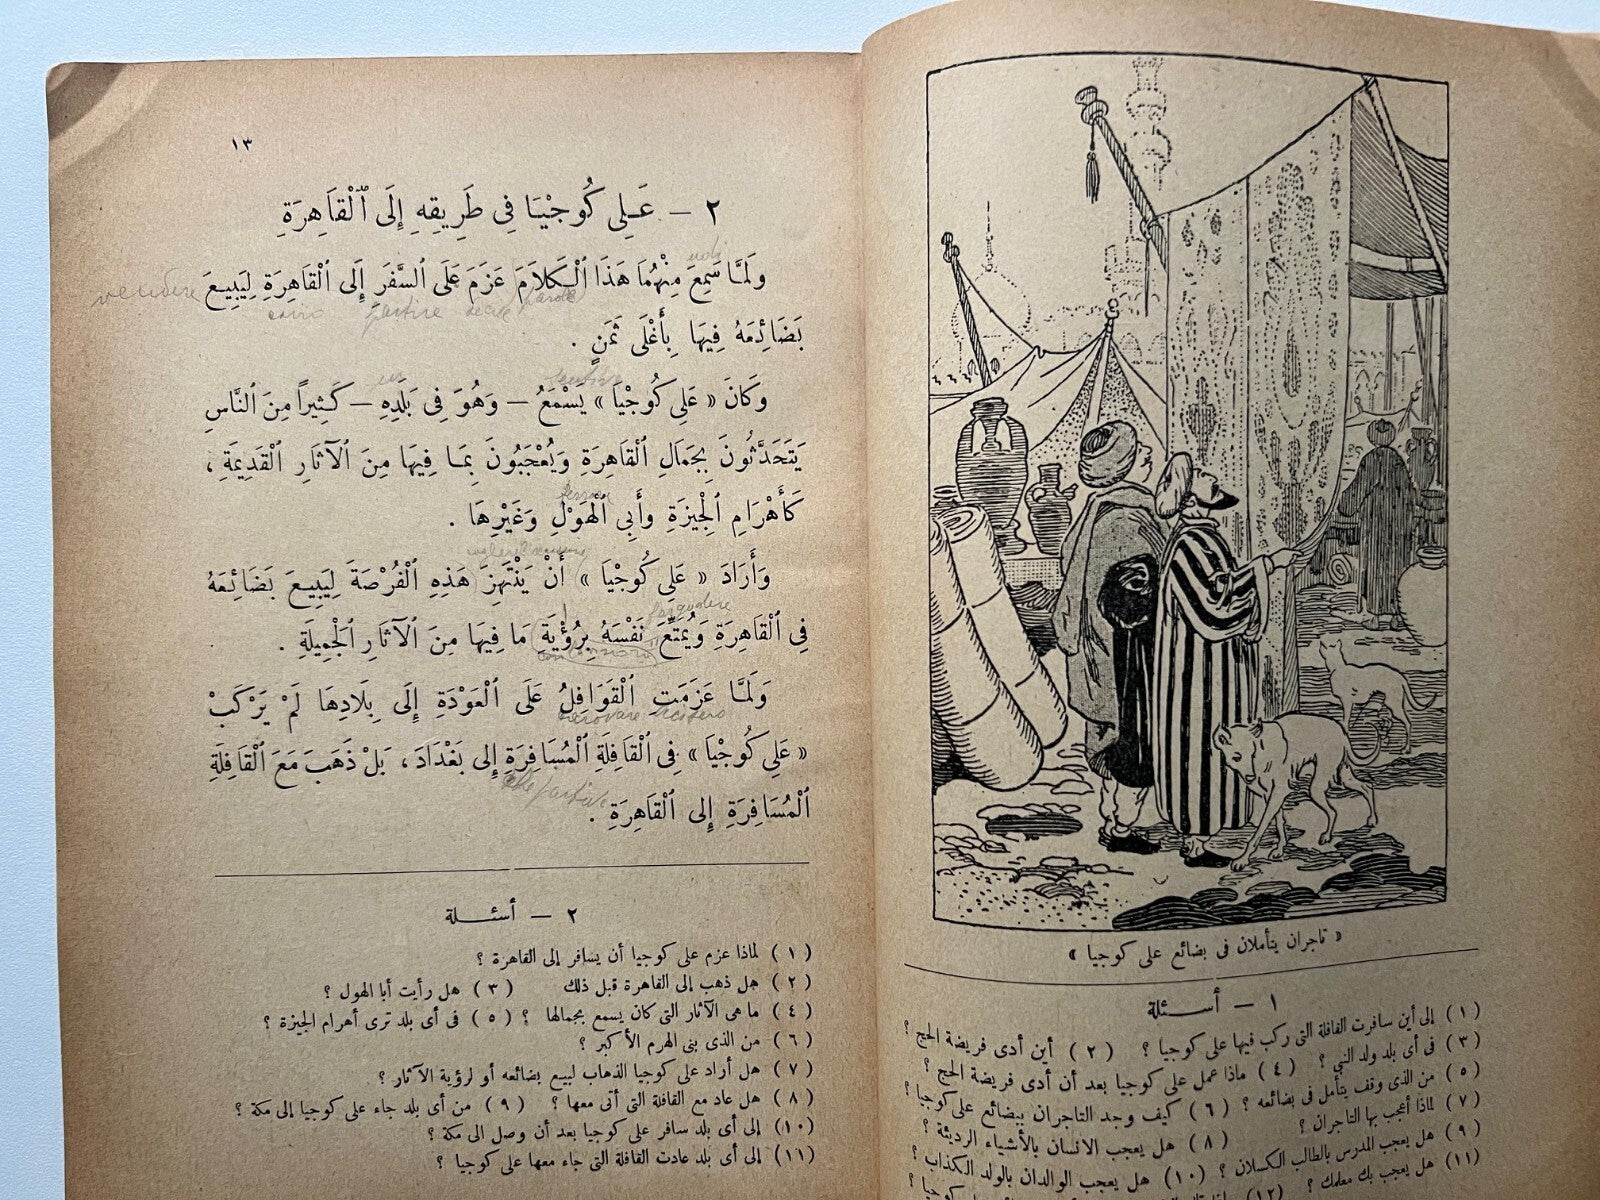 « تاجران يتأملان فى بضائع على كوجيا »
١ — أسئلة
( ١ ) إلى أين سافرت القافلة التى ركب فيها على كوجيا ؟ ( ٢ ) أين أدى فريضة الحج ؟
( ٣ ) فى أى بلد ولد النبي ؟ ( ٤ ) ماذا عمل على كوجيا بعد أن أدى فريضة الحج ؟
( ٥ ) من الذى وقف يتأمل فى بضائعه ؟ ( ٦ ) كيف وجد التاجران بضائع على كوجيا ؟
( ٧ ) لماذا أعجب بها التاجران ؟ ( ٨ ) هل يعجب الانسان بالأشياء الرديئة ؟
( ٩ ) هل يعجب المدرس بالطالب الكسلان ؟ (١٠) هل يعجب الوالدان بالولد الكذاب ؟
(١١) هل يعجب بك معلمك ؟ (١٢)
١٣
٢ — عَلِى كُوجْيَا فِى طَرِيقِهِ إِلَى ٱلْقَاهِرَةِ
وَلَمَّا سَمِعَ مِنْهُمَا هَذَا ٱلْكَلَامَ عَزَمَ عَلَى ٱلسَّفَرِ إِلَى ٱلْقَاهِرَةِ لِيَبِيعَ
vendere cairo partire decise parole
بَضَائِعَهُ فِيهَا بِأَغْلَى ثَمَنٍ .
وَكَانَ « عَلِى كُوجْيَا » يَسْمَعُ — وَهُوَ فِى بَلَدِهِ — كَثِيراً مِنَ ٱلنَّاسِ
يَتَحَدَّثُونَ بِجَمَالِ ٱلْقَاهِرَةِ وَيُعْجَبُونَ بِمَا فِيهَا مِنَ ٱلْآثَارِ ٱلْقَدِيمَةِ ،
كَأَهْرَامِ ٱلْجِيزَةِ وَأَبِى ٱلْهَوْلِ وَغَيْرِهَا .
وَأَرَادَ « عَلِى كُوجْيَا » أَنْ يَنْتَهِزَ هَذِهِ ٱلْفُرْصَةَ لِيَبِيعَ بَضَائِعَهُ
فِى ٱلْقَاهِرَةِ وَيُمَتِّعَ نَفْسَهُ بِرُؤْيَةِ مَا فِيهَا مِنَ ٱلْآثَارِ ٱلْجَمِيلَةِ .
وَلَمَّا عَزَمَتِ ٱلْقَوَافِلُ عَلَى ٱلْعَوْدَةِ إِلَى بِلَادِهَا لَمْ يَرْكَبْ
« عَلِى كُوجْيَا » فِى ٱلْقَافِلَةِ ٱلْمُسَافِرَةِ إِلى بَغْدَادَ ، بَلْ ذَهَبَ مَعَ ٱلْقَافِلَةِ
ٱلْمُسَافِرَةِ إِلى ٱلْقَاهِرَةِ .
٢ — أسئلة
( ١ ) لماذا عزم على كوجيا أن يسافر إلى القاهرة ؟
( ٢ ) هل ذهب إلى القاهرة قبل ذلك ( ٣ ) هل رأيت أبا الهول ؟
( ٤ ) ما هى الآثار التى كان يسمع بجمالها ؟ ( ٥ ) فى أى بلد ترى أهرام الجيزة ؟
( ٦ ) من الذى بنى الهرم الأكبر ؟
( ٧ ) هل أراد على كوجيا الذهاب لبيع بضائعه أو لرؤية الآثار ؟
( ٨ ) هل عاد مع القافلة التى أتى معها ؟ ( ٩ ) من أى بلد جاء على كوجيا إلى مكة ؟
(١٠) إلى أى بلد سافر على كوجيا بعد أن وصل الى مكة ؟
(١١) إلى أى بلد عادت القافلة التى جاء معها على كوجيا ؟